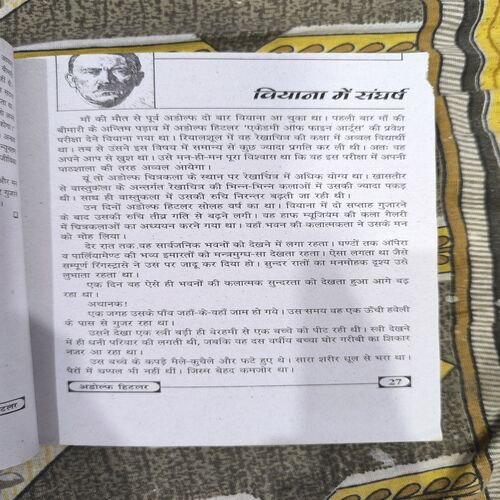 वियाना में संघर्ष
माँ की मौत से पूर्व अडोल्फ दो बार वियाना आ चुका था। पहली बार माँ की
बीमारी के अन्तिम पड़ाव में अडोल्फ हिटलर 'एकेडमी ऑफ फाइन आर्ट्स' की प्रवेश
परीक्षा देने वियाना गया था। रियालशूल में वह रेखाचित्र की कक्षा में अव्वल विद्यार्थी
था। तब से उसने इस विषय में समान्य से कुछ ज्यादा प्रगति कर ली थी। अतः वह
अपने आप से खुश था। उसे मन-ही-मन पूरा विश्वास था कि वह इस परीक्षा में अपनी
पाठशाला की तरह अव्वल आयेगा।
यूं तो अडोल्फ चित्रकला के स्थान पर रेखाचित्र में अधिक योग्य था। खासतौर
से वास्तुकला के अन्तर्गत रेखाचित्र की भिन्न-भिन्न कलाओं में उसकी ज्यादा पकड़
थी। साथ ही वास्तुकला में उसकी रुचि निरन्तर बढ़ती जा रही थी।
उन दिनों अडोल्फ हिटलर सोलह वर्ष का था। वियाना में दो सप्ताह गुजारने
के बाद उसकी रुचि तीव्र गति से बढ़ने लगी। वह हाफ म्यूजियम की कला गैलरी
में चित्रकलाओं का अध्ययन करने गया था। वहाँ भवन की कलात्मकता ने उसके मन
को मोह लिया।
देर रात तक वह सार्वजनिक भवनों को देखने में लगा रहता। घण्टों तक अपिरा
व पार्लियामेण्ट की भव्य इमारतों को मन्त्रमुग्ध-सा देखता रहता। ऐसा लगता था जैसे
सम्पूर्ण रिंगस्ट्रासे ने उस पर जादू कर दिया हो। सुन्दर रातों का मनमोहक दृश्य उसे
लुभाता रहता था।
एक दिन वह ऐसे ही भवनों की कलात्मक सुन्दरता को देखता हुआ आगे बढ़
रहा था।
अचानक!
एक जगह उसके पाँव जहाँ-के-वहाँ जाम हो गये। उस समय वह एक ऊँची हवेली
के पास से गुजर रहा था।
उसने देखा एक स्त्री बड़ी ही बेरहमी से एक बच्चे को पीट रही थी। स्त्री देखने
में ही धनी परिवार की लगती थी, जबकि वह दस वर्षीय बच्चा घोर गरीबी का शिकार
नजर आ रहा था।
उस बच्चे के कपड़े मैले-कुचैले और फटे हुए थे। सारा शरीर धूल से भरा था।
पैरों में चप्पल भी नहीं थीं। जिस्म बेहद कमजोर था।
अडोल्फ हिटलर
27